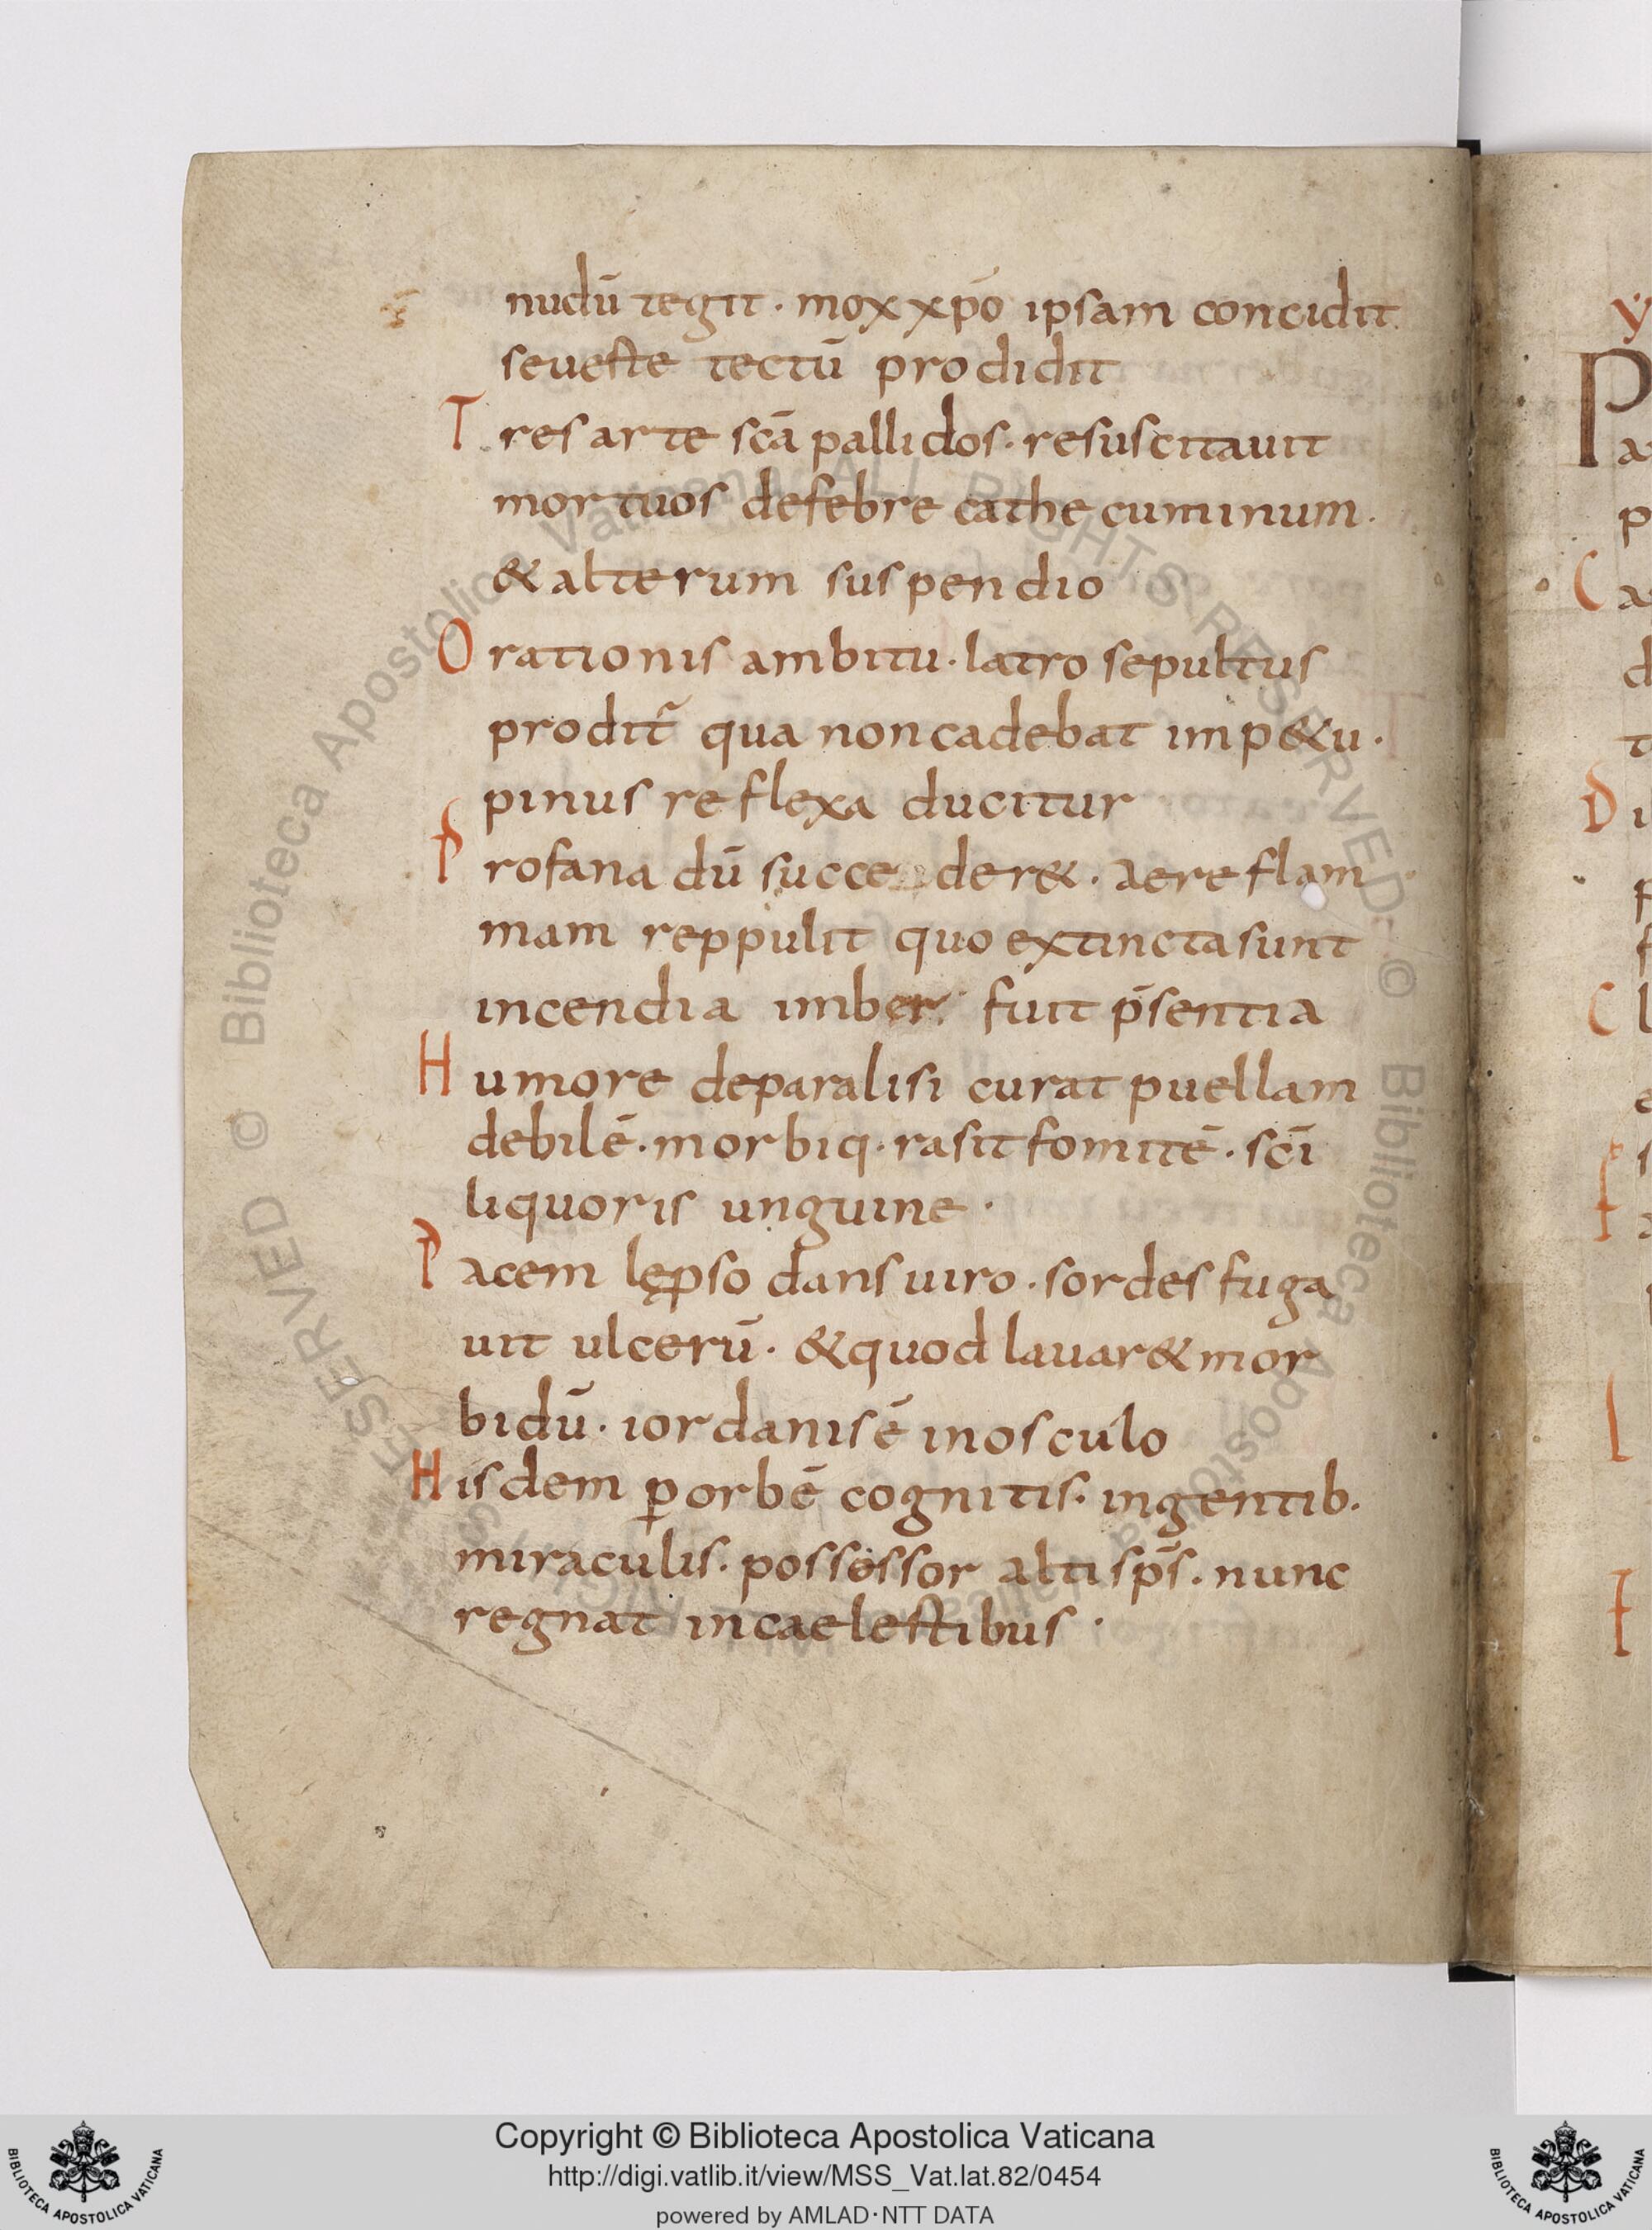 nudū tegit · mox xp̄o ipsam concidit
seueste tectū prodidit
T res arte scā pallidos · resuscitauit
mortuos defebre cathe cuminum ·
& alterum suspendio
O rationis ambitu · latro sepultus
prodit̄ qua noncadebat imp&u ·
pinus reflexa ducitur
P rofana dū succe der& · aere flam
mam reppulit quo extinctasunt
incendia imber fuit p̄sentia
H umore deparalisi curat puellam
debilē · morbiq · rasit fomitē · scī
liquoris unguine ·
P acem lępso dans uiro · sordes fuga
uit ulcerū · & quod lauar& mor
bidū · iordanis ē inosculo
H isdem ꝑ orbē cognitis · ingentib ·
miraculis · possessor alti sp̄s · nunc
regnat incaelestibus ·
y
P
a
p
C a
d
t
D i
C l
© Biblioteca Apostolica Vaticana ALL RIGHTS RESERVED © Biblioteca Apostolica Vaticana ALL RIGHTS RESERVED
Copyright © Biblioteca Apostolica Vaticana
http://digi.vatlib.it/view/MSS_Vat.lat.82/0454
powered by AMLAD·NTT DATA
BIBLIOTECA APOSTOLICA VATICANA
BIBLIOTECA APOSTOLICA VATICANA